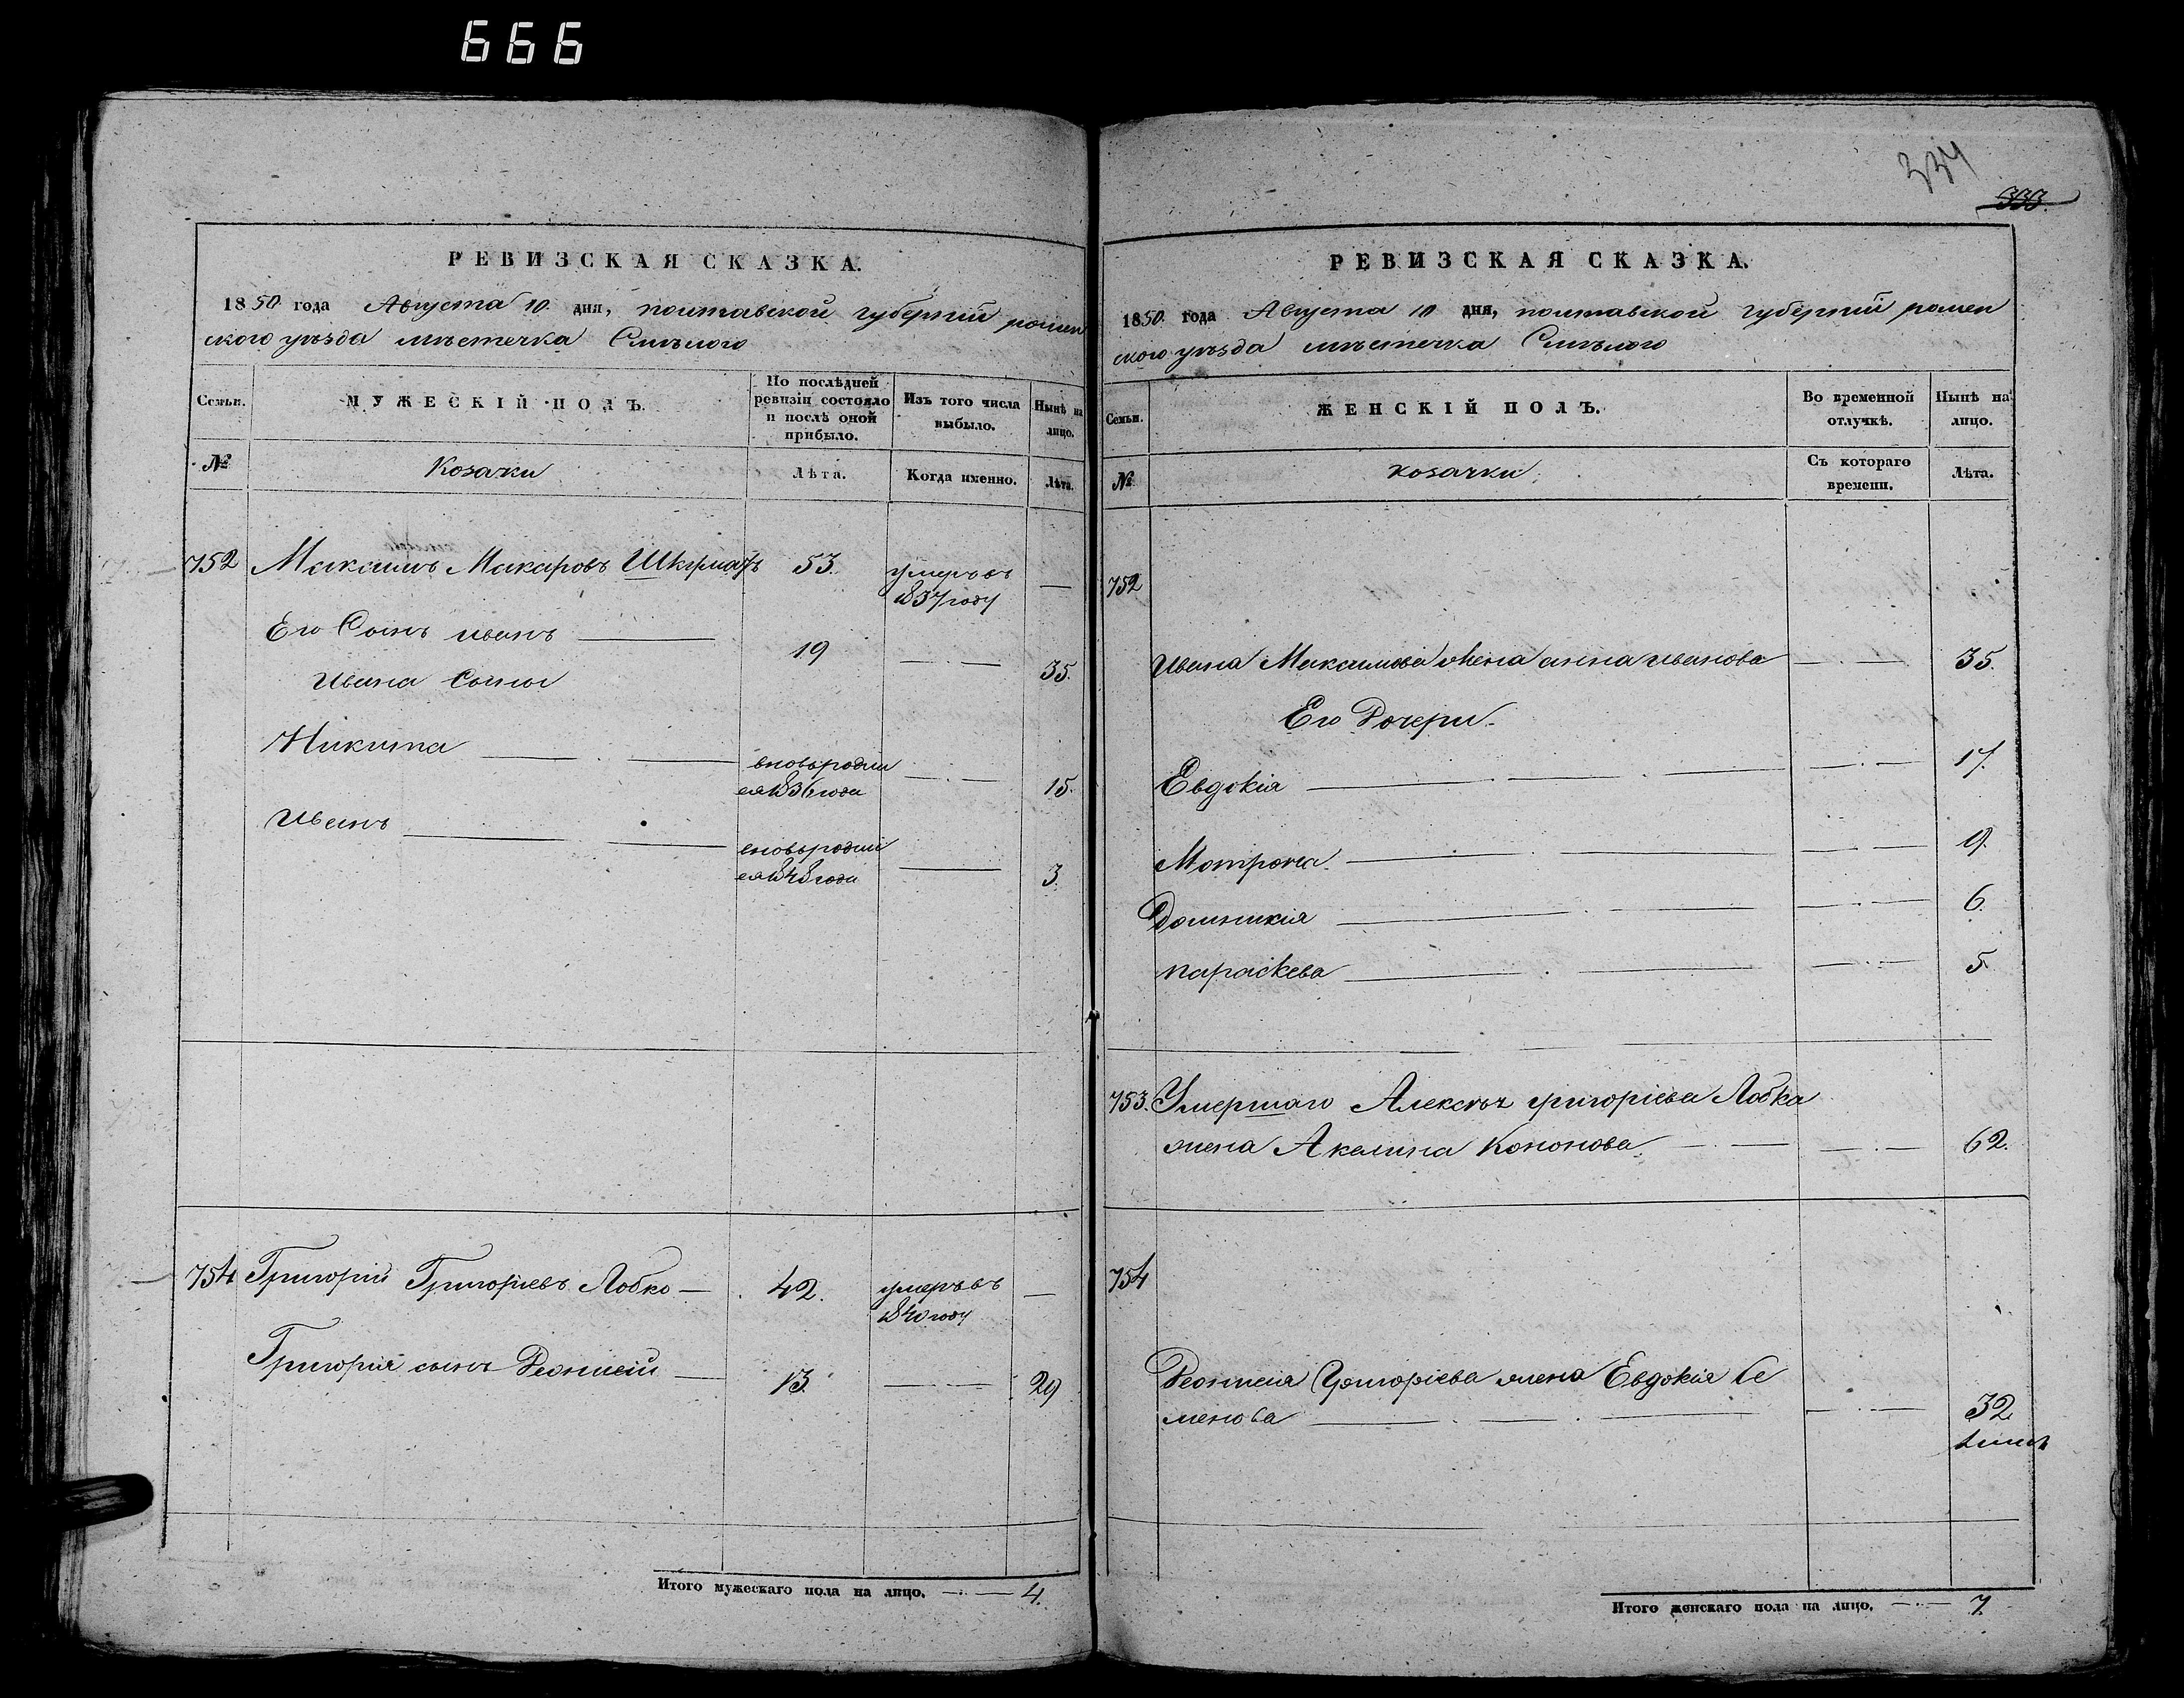 666
РЕВИЗСКАЯ СКАЗКА.
1850 года Августа 10 дня, полтавской губернии ромен
ского уѣзда мѣстечка Смѣлого
Семьи.
МУЖЕСКІЙ ПОЛЪ.
По послѣдней
ревизіи состояло
и послѣ оной
прибыло.
Изъ того числа
выбыло.
Нынѣ на
лицо.
№
Козачки
Лѣта.
Когда именно.
Лѣта.
752 Максимъ Макаровъ 53. умеръ въ —
1837 году
Его Сынъ иванъ — 19 — 35.
Ивана Сыны
Никита — вновьродил
ся 1836 года — 15.
Иванъ — вновьродил
ся 1848 года — 3.
754 Григорій Григоріевъ Лобко — 42. умеръ въ —
1840 году
Григорія сынъ Деонисій — 13. — 29
Итого мужескаго пола на лицо. — 4.
334
333.
РЕВИЗСКАЯ СКАЗКА.
1850 года Августа 10 дня, полтавской губернии ромен
ского уѣзда мѣстечка Смѣлого
Семьи.
ЖЕНСКІЙ ПОЛЪ.
Во временной
отлучкѣ.
Нынѣ на
лицо.
№
козачки
Съ котораго
времени.
Лѣта.
752
Ивана Максимова жена анна иванова — 35.
Его Дочери.
Евдокія — 17.
Мотрона — 9.
Домникія — 6.
параскева — 5.
753. Умершаго Алексѣя григоріева Лобка
жена Акелина Кононова — 62.
754
Деонисія Григоріева жена Евдокія Се
менова — 32
Итого женскаго пола на лицо. — 7.